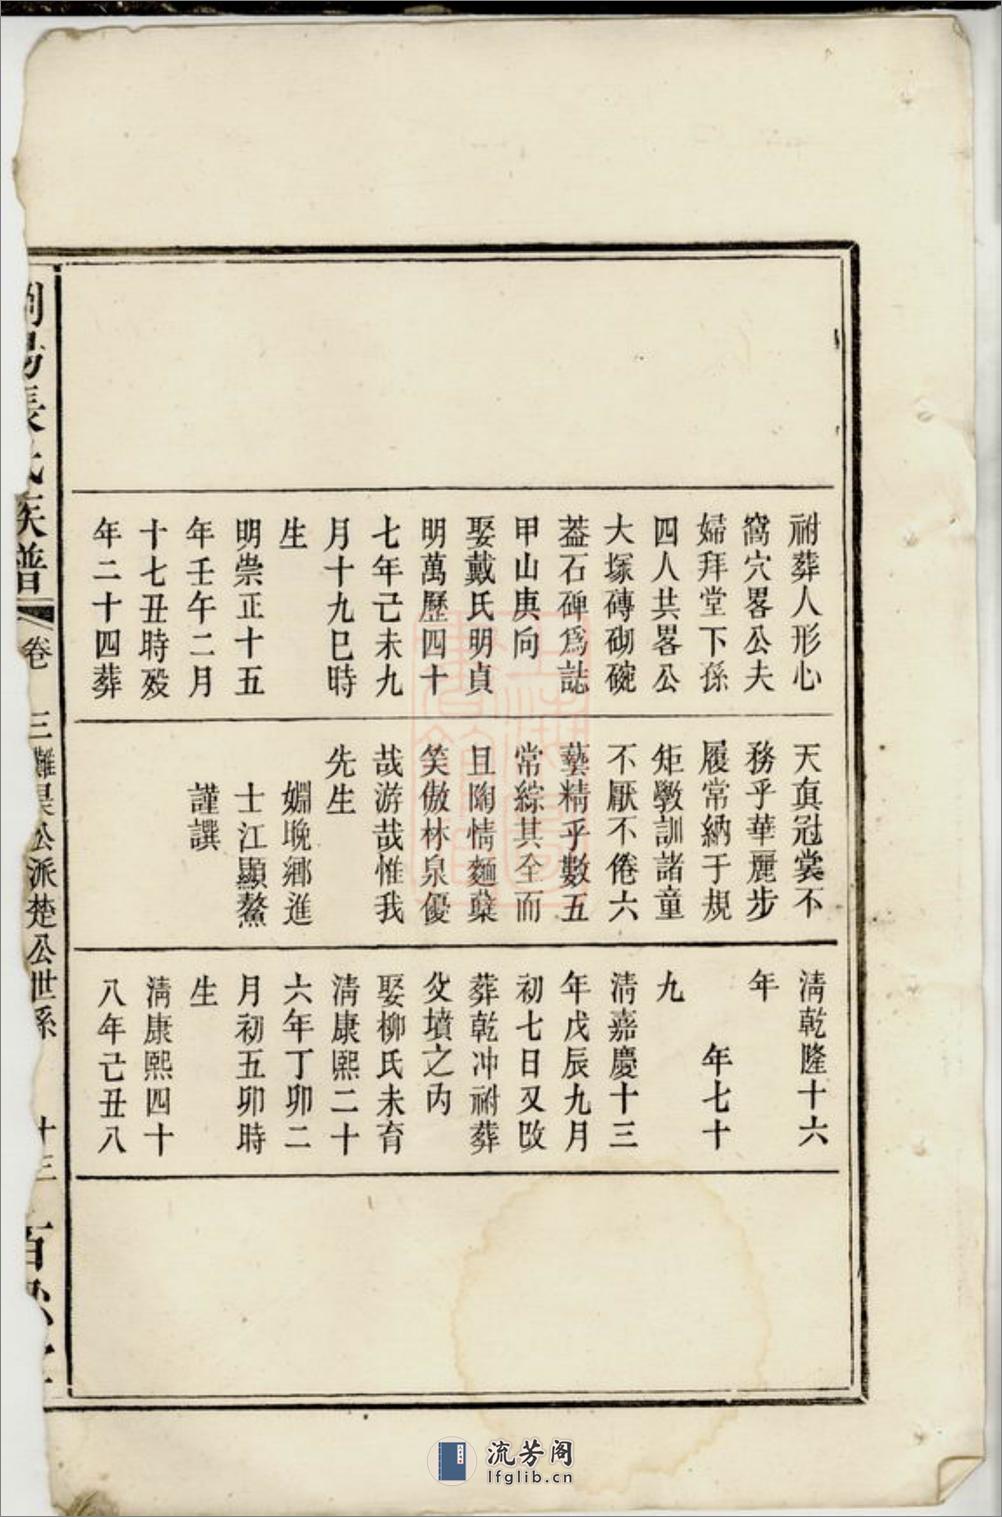 祔葬人形心
窩穴畧公夫
婦拜堂下孫
四人共畧公
大塚磚砌碗
葢石碑爲誌
甲山庚向
娶戴氏明貞
明萬歷四十
七年己未九
月十九巳時
生
明崇正十五
年壬午二月
十七丑時歿
年二十四葬
天眞冠裳不
務乎華麗步
履常納于規
矩斆訓諸童
不厭不倦六
藝精乎數五
常綜其全而
且陶情麵糵
笑傲林泉優
哉游哉惟我
先生
姻晚鄉進
士江顯鰲
謹譔
淸乾隆十六
年
年七十
九
淸嘉慶十三
年戊辰九月
初七日又改
葬乾冲祔葬
父墳之內
娶柳氏未育
淸康熙二十
六年丁卯二
月初五卯時
生
淸康熙四十
八年己丑八
瀏陽張氏族譜 卷 三難杲公派楚公世系 十三 百忍堂
流芳阁
lfglib.cn